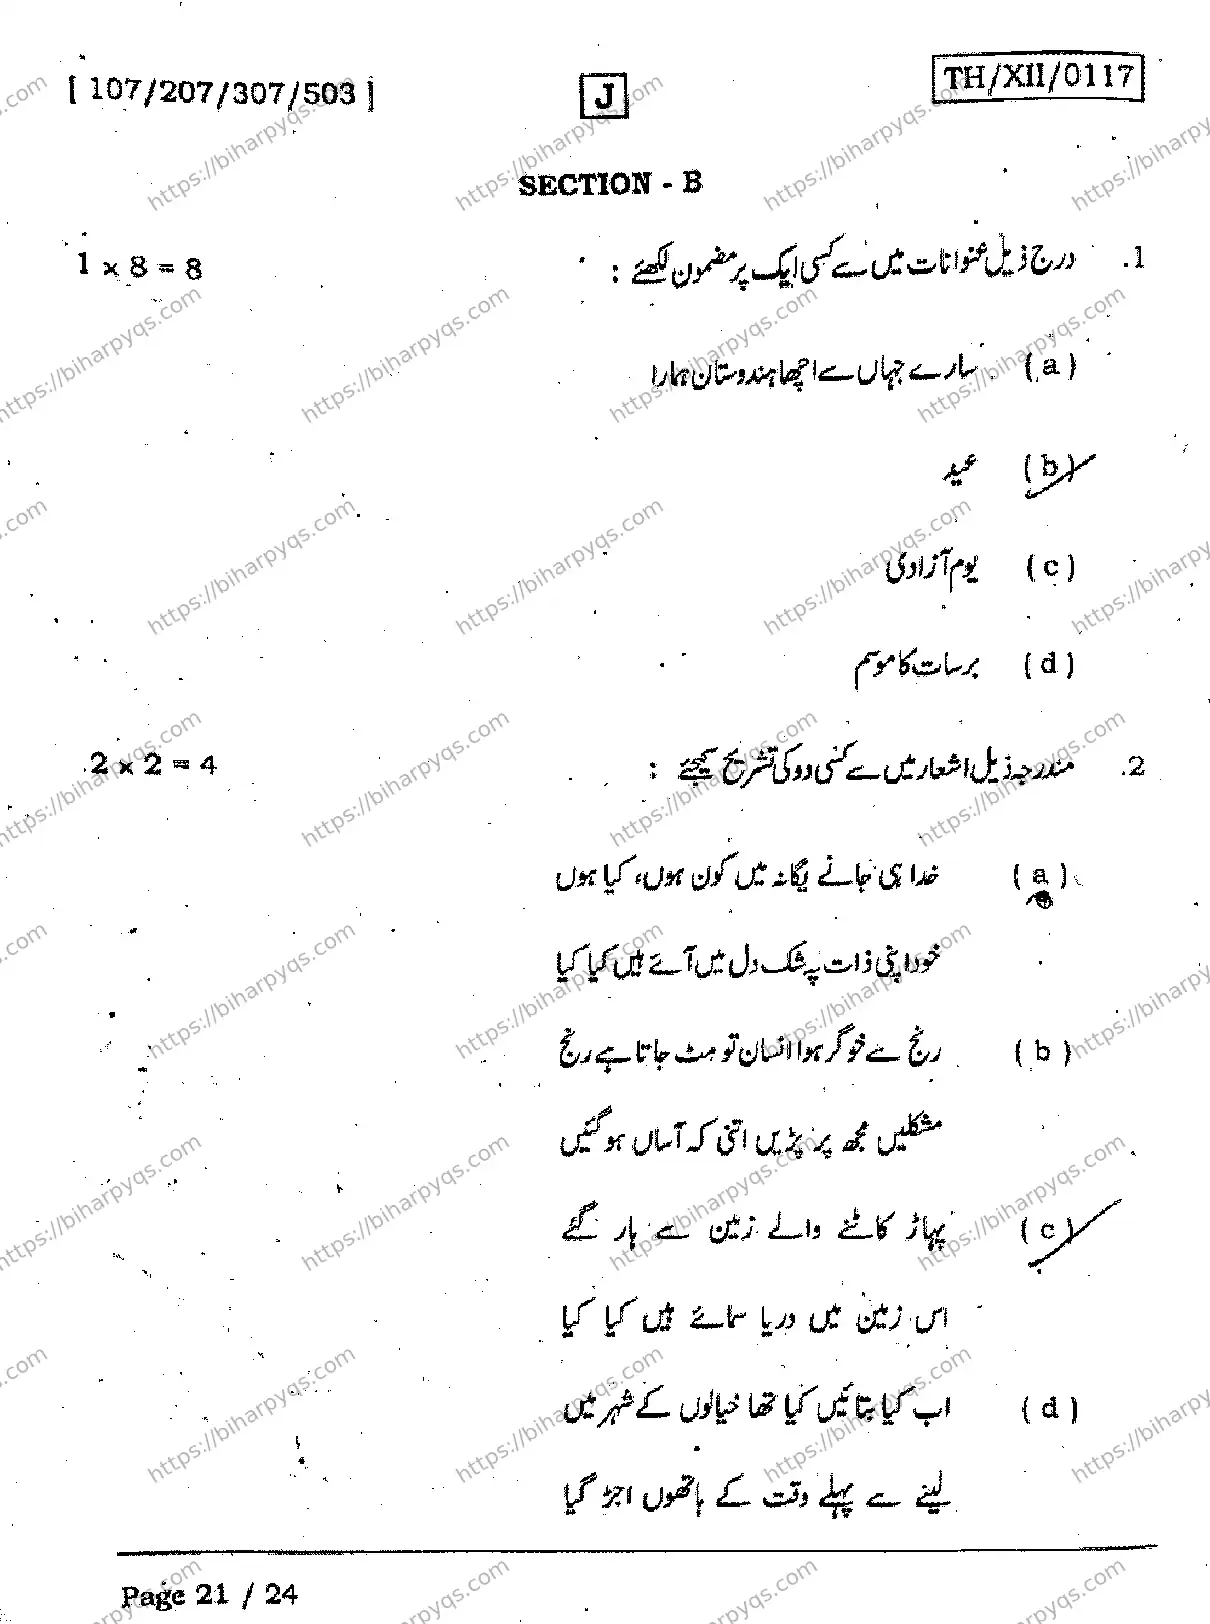 [ 107/207/307/503 ] J TH/XII/0117
SECTION - B
1. درج ذیل عنوانات میں سے کسی ایک پر مضمون لکھئے : 1 x 8 = 8
(a) سارے جہاں سے اچھا ہندوستان ہمارا
(b) عید
(c) یوم آزادی
(d) برسات کا موسم
2. مندرجہ ذیل اشعار میں سے کسی دو کی تشریح کیجئے : 2 x 2 = 4
(a) خدا ہی جانے یگانہ میں کون ہوں، کیا ہوں
خود اپنی ذات پہ شک دل میں آئے ہیں کیا کیا
(b) رنج سے خوگر ہوا انسان تو مٹ جاتا ہے رنج
مشکلیں مجھ پر پڑیں اتنی کہ آساں ہو گئیں
(c) پہاڑ کاٹنے والے زمین سے ہار گئے
اس زمین میں دریا سمائے ہیں کیا کیا
(d) اب کیا بتائیں کیا تھا خیالوں کے شہر میں
لینے سے پہلے وقت کے ہاتھوں اجڑ گیا
Page 21 / 24
https://biharpyqs.com